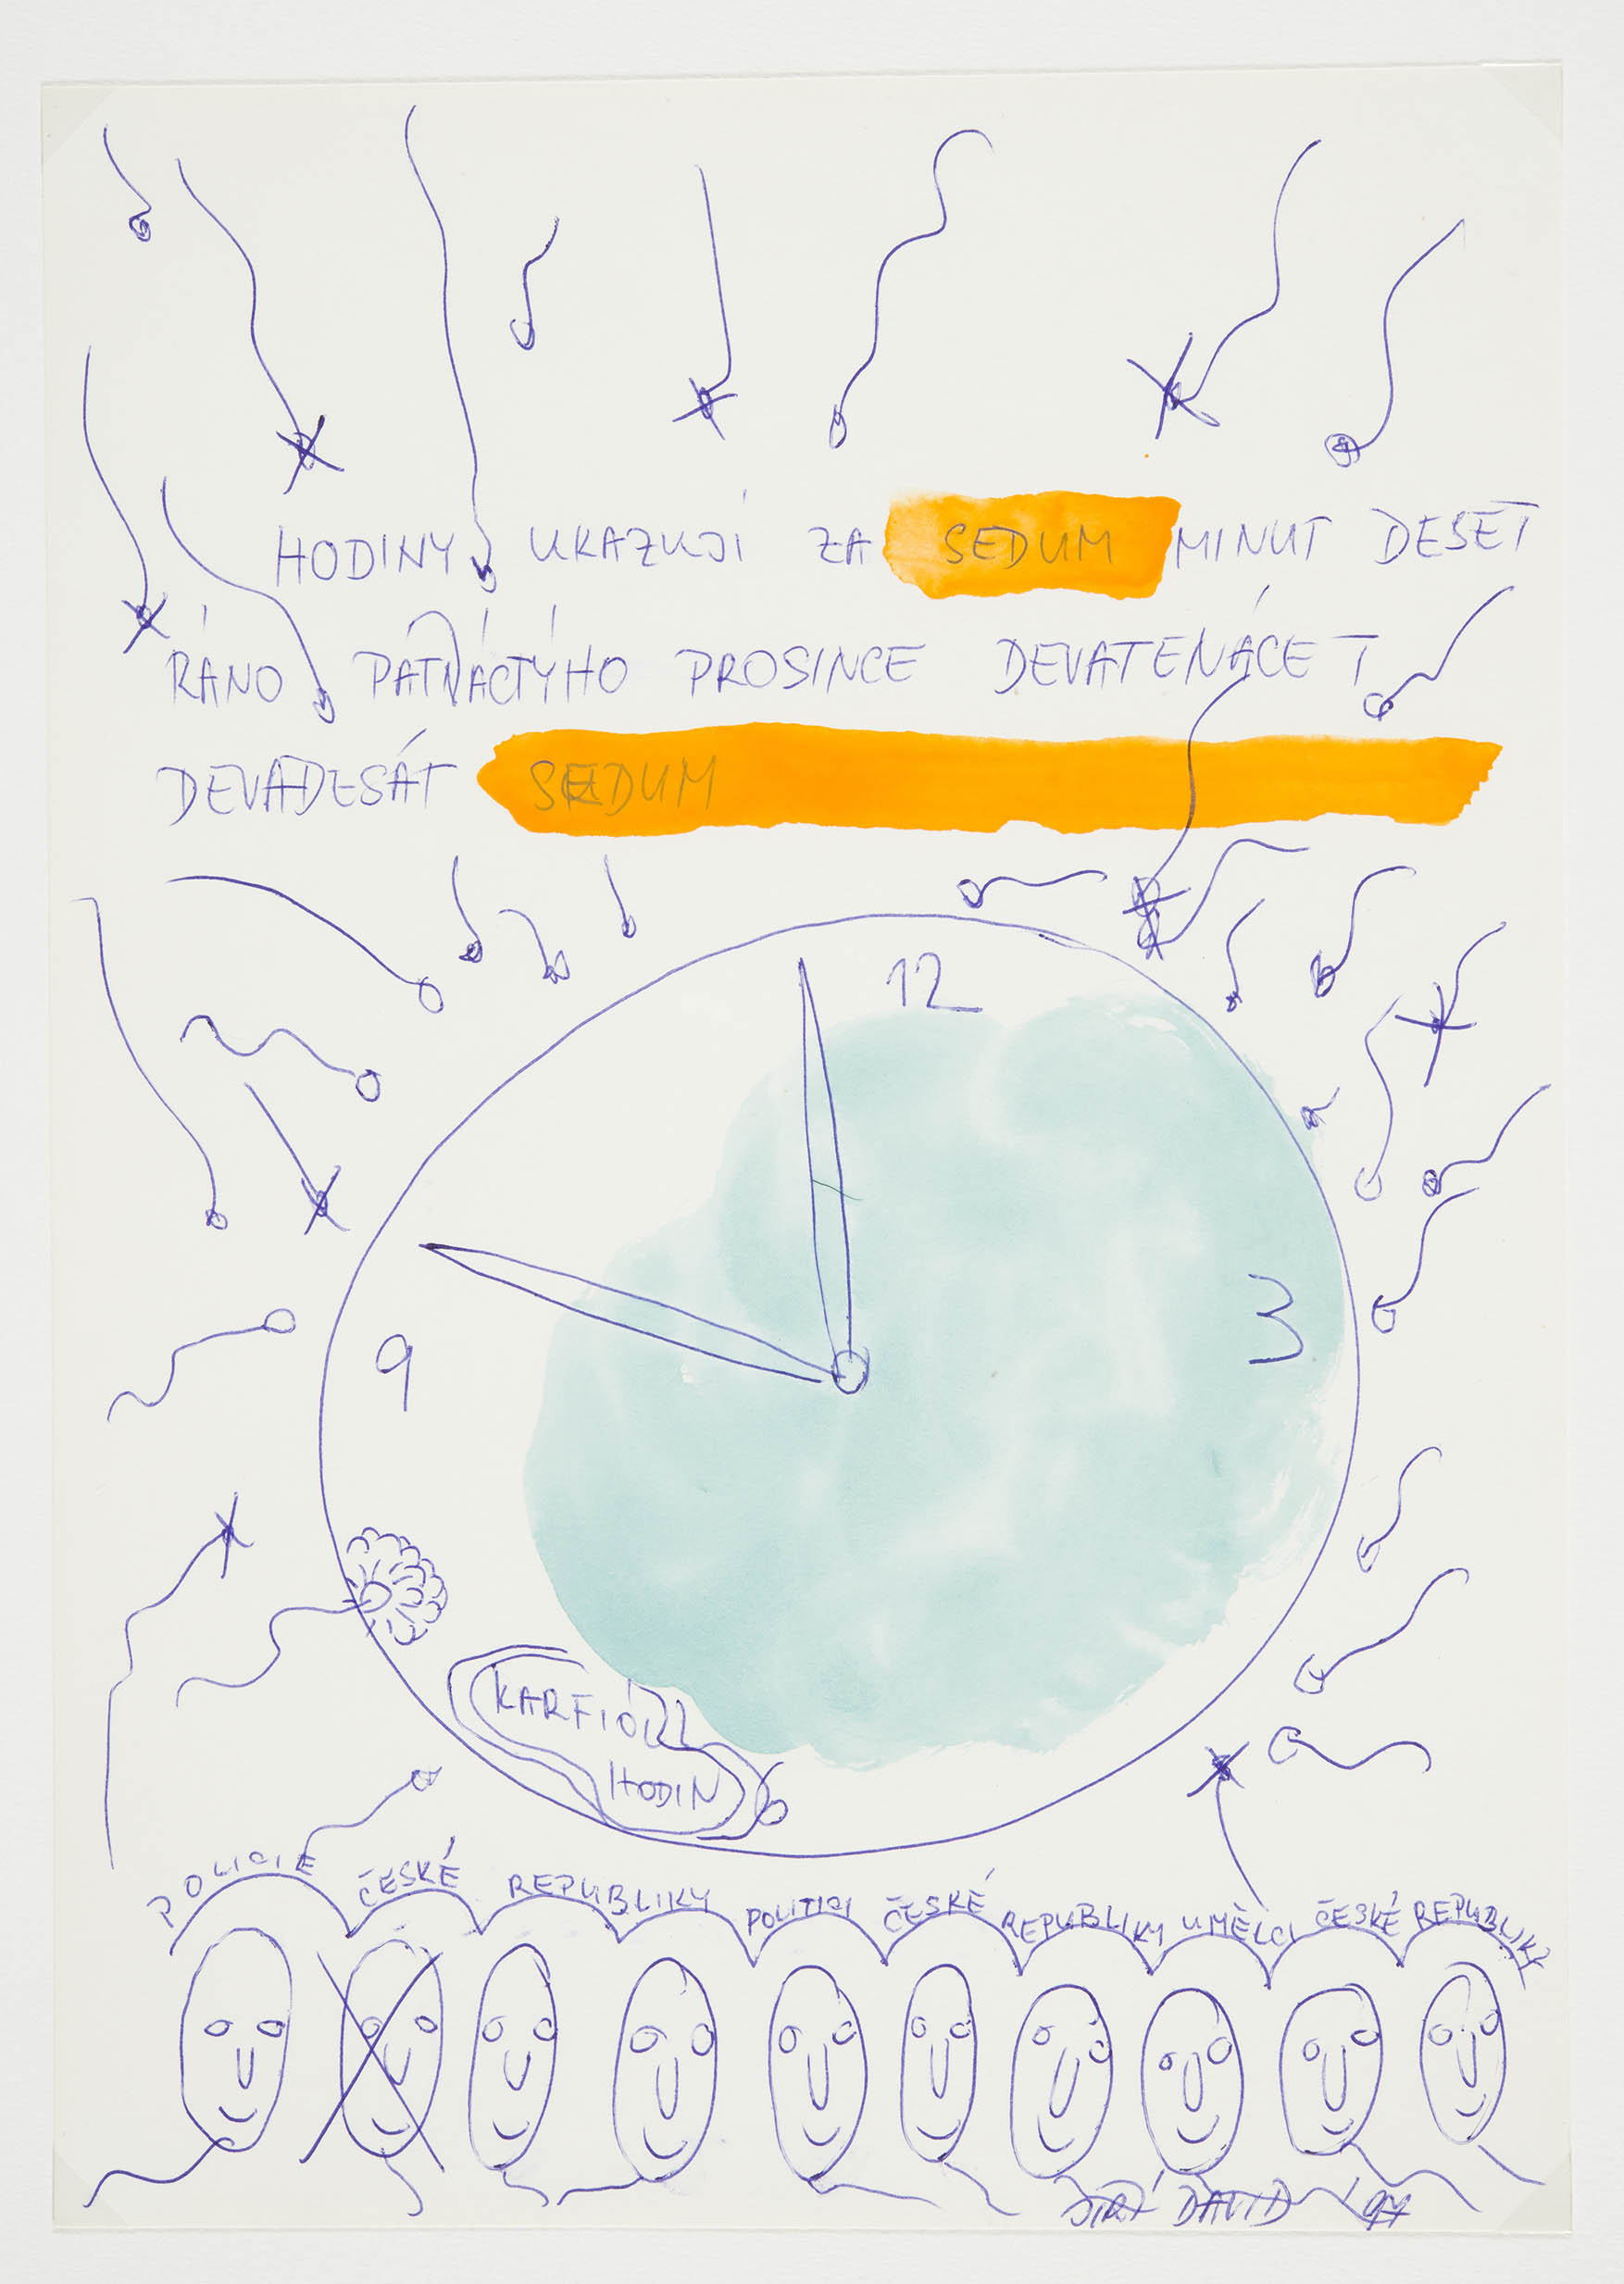 HODINY UKAZUJÍ ZA SEDUM MINUT DESET
RÁNO PÁTNÁCTÝHO PROSINCE DEVATENÁCET
DEVADESÁT SEDUM
12
9
3
KARFIÓL
HODIN
POLICIE ČESKÉ REPUBLIKY POLITICI ČESKÉ REPUBLIKY UMĚLCI ČESKÉ REPUBLIKY
JIŘÍ DAVID 97